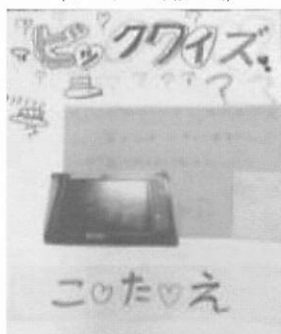 ビックワイズ
こ♡た♡え